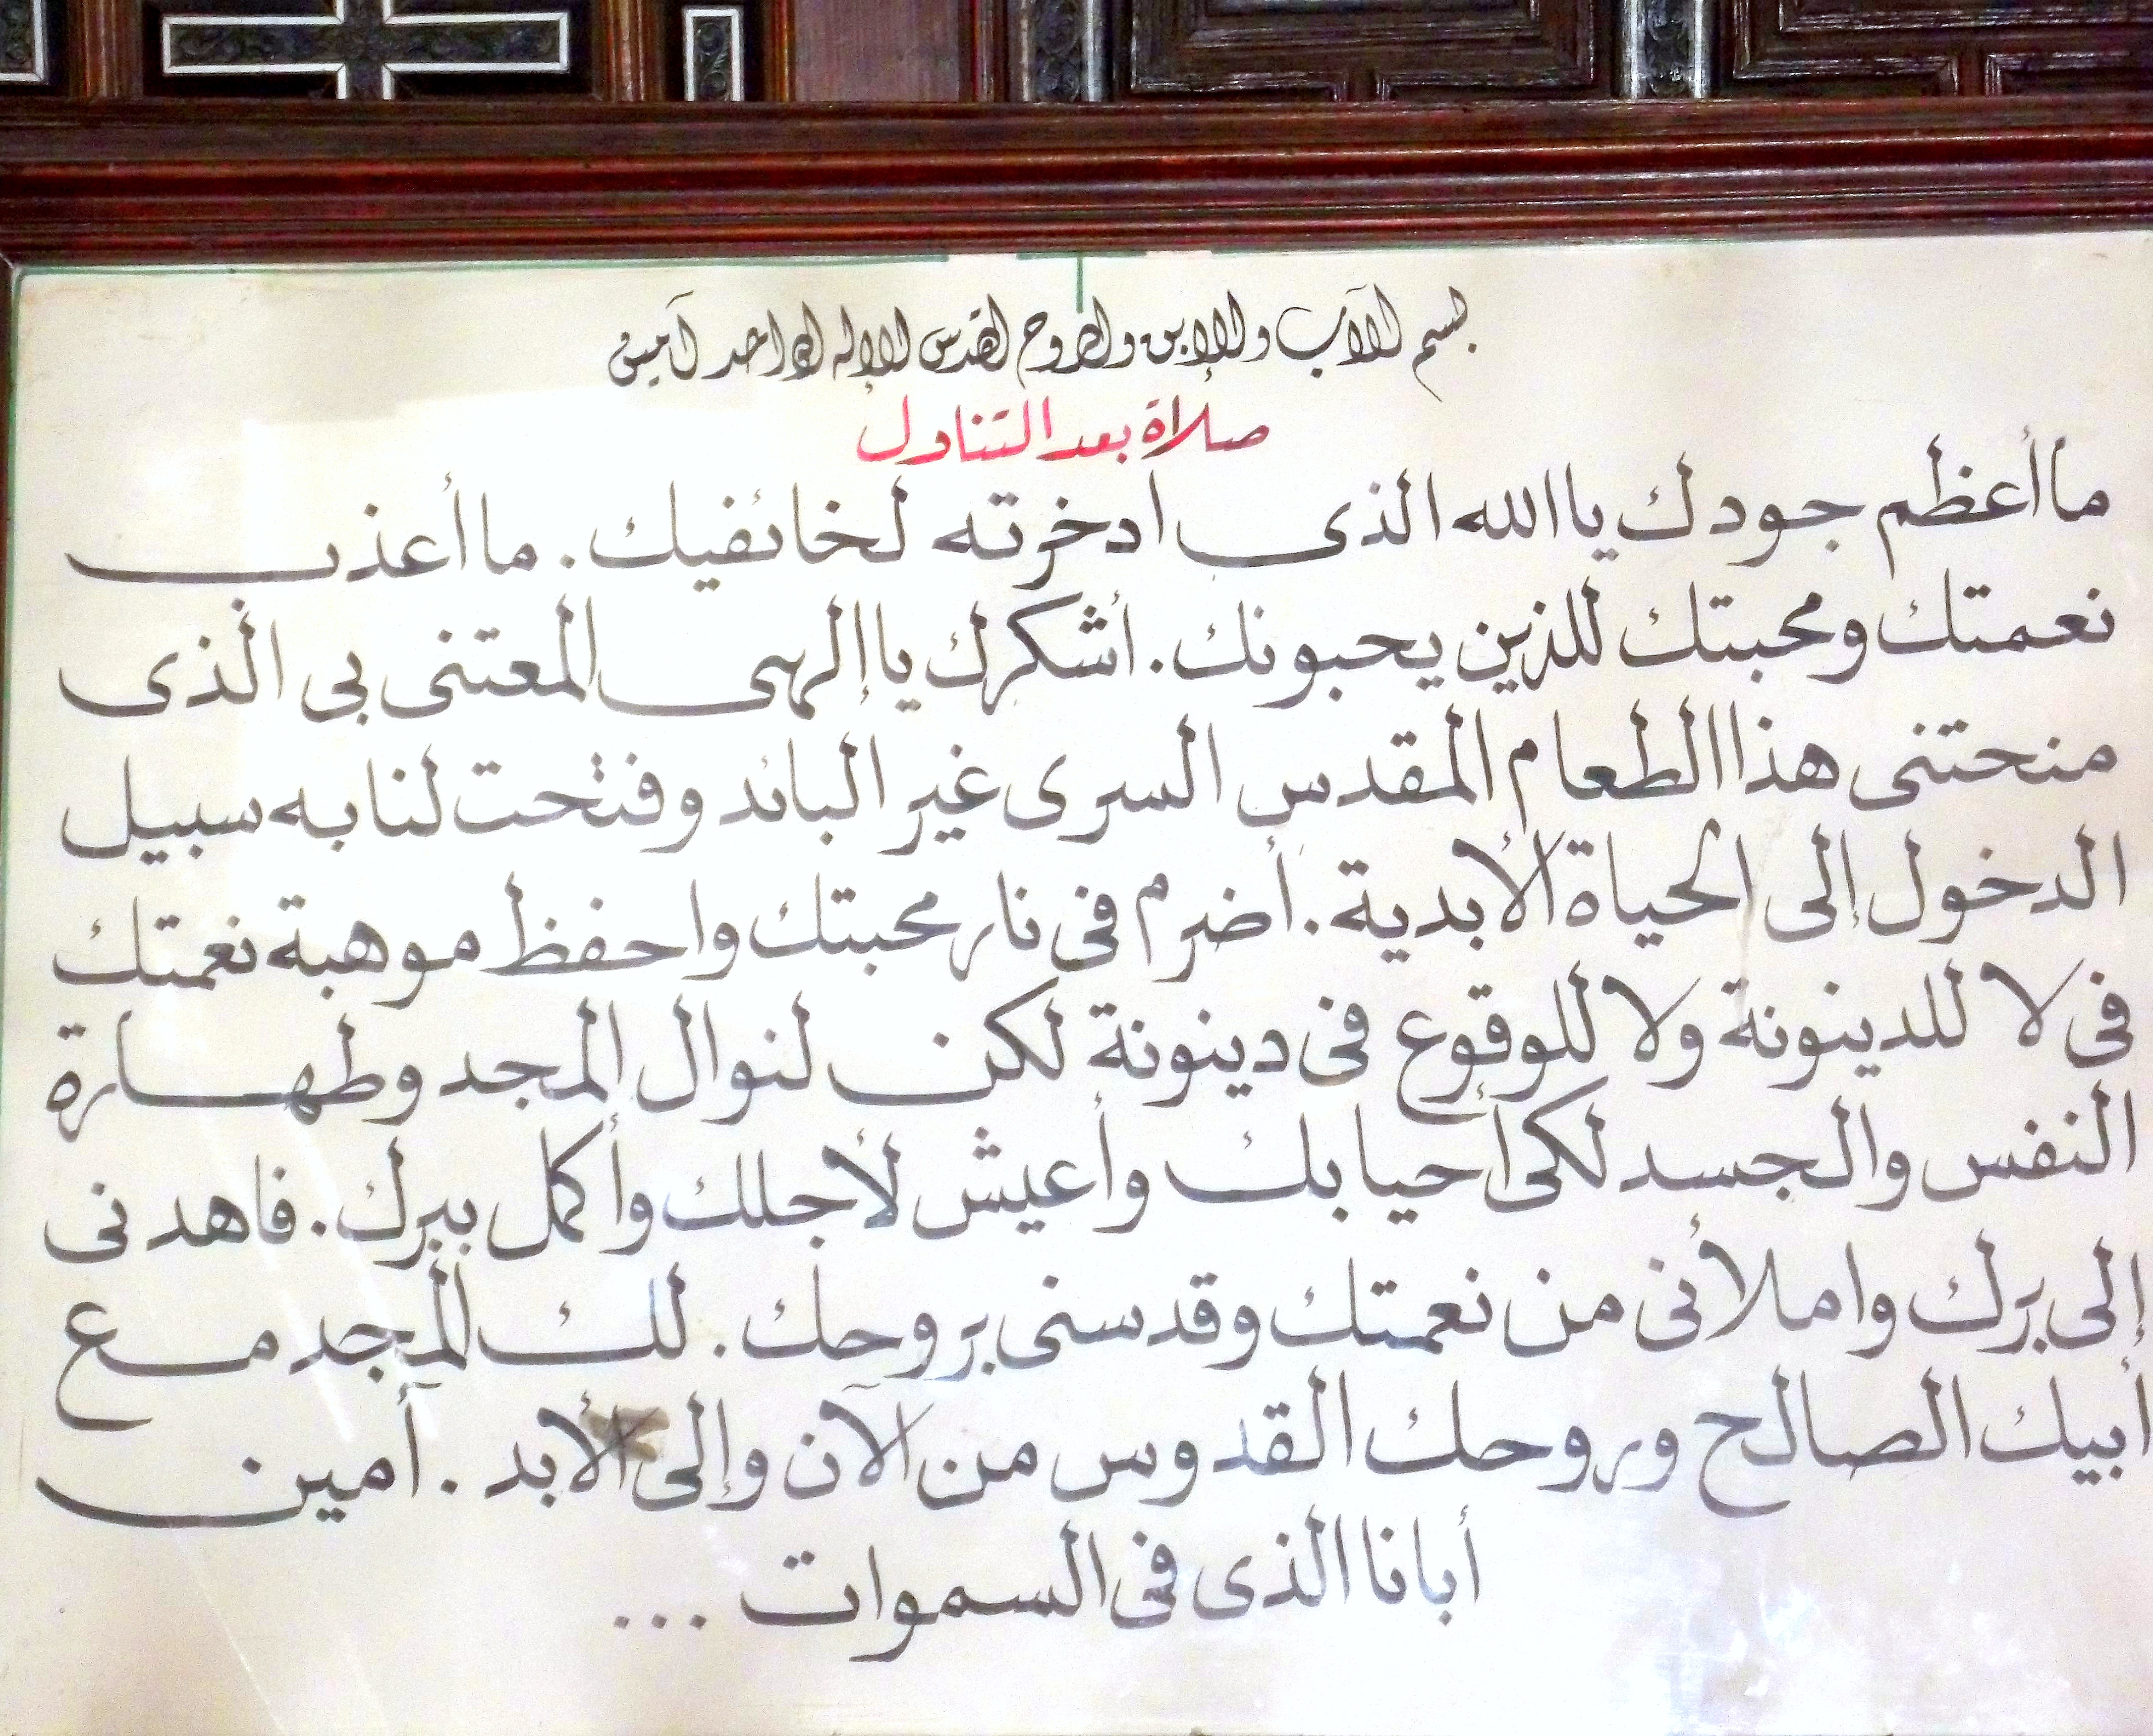 بسم الآب والإبن والروح القدس الإله الواحد آمين
صلاة بعد التناول
ما أعظم جودك يا الله الذى ادخرته لخائفيك. ما أعذب
نعمتك ومحبتك للذين يحبونك. أشكرك يا إلهى المعتنى بى الذى
منحتنى هذا الطعام المقدس السرى غير البائد وفتحت لنا به سبيل
الدخول إلى الحياة الأبدية. أضرم فى نار محبتك واحفظ موهبة نعمتك
فى لا للدينونة ولا للوقوع فى دينونة لكن لنوال المجد وطهارة
النفس والجسد لكى أحيا بك وأعيش لأجلك وأكمل ببرك. فاهدنى
إلى برك واملأنى من نعمتك وقدسنى بروحك. لك المجد مع
أبيك الصالح وروحك القدوس من الآن وإلى الأبد. أمين
أبانا الذى فى السموات ...